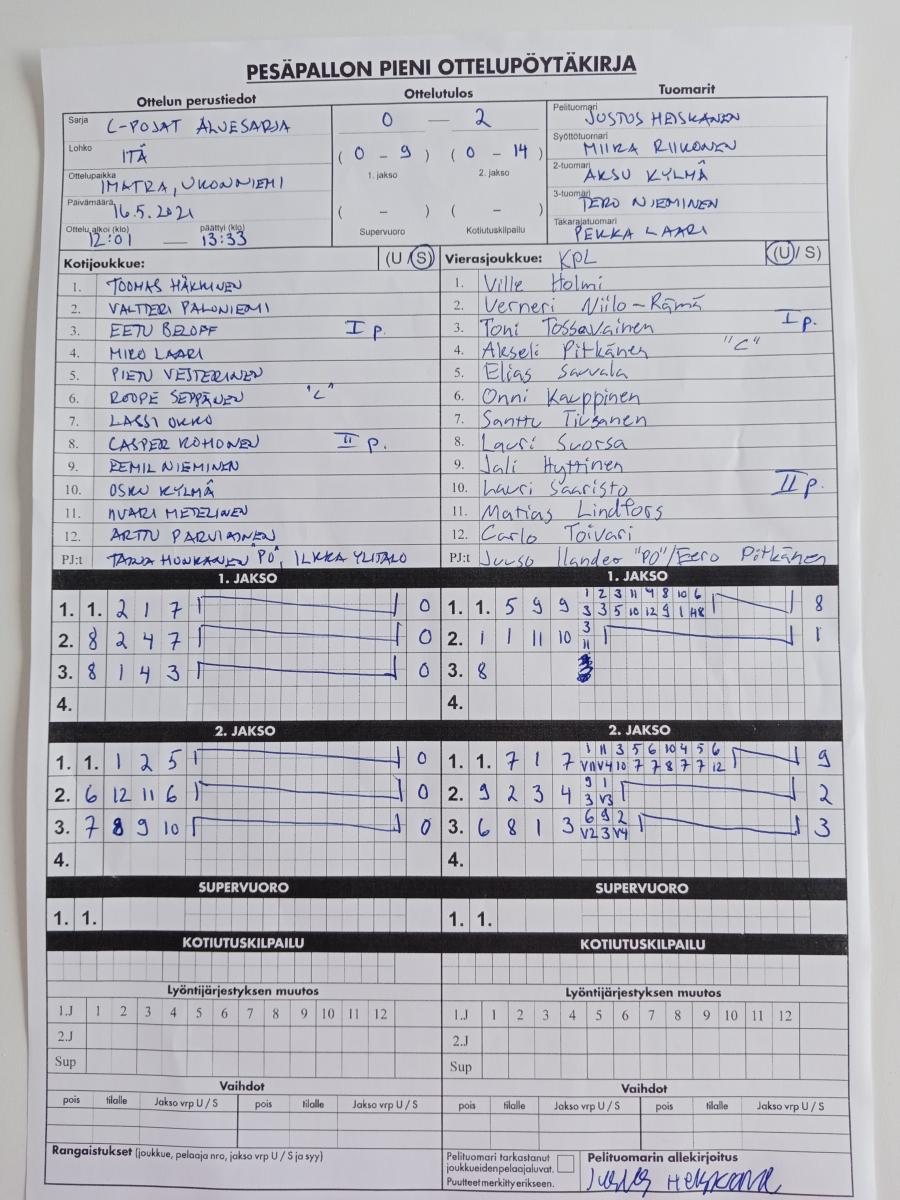 PESÄPALLON PIENI OTTELUPÖYTÄKIRJA
Ottelun perustiedot Ottelutulos Tuomarit
Sarja C-POJAT ALUESARJA
Lohko ITÄ
Ottelupaikka IMATRA, UKONNIEMI
Päivämäärä 16.5.2021
Ottelu alkoi (klo) 12:01 — päättyi (klo) 13:33
0 — 2
( 0 - 9 ) ( 0 - 14 )
1. jakso 2. jakso
( - ) ( - )
Supervuoro Kotiutuskilpailu
Pelituomari JUSTUS HEISKANEN
Syöttötuomari MIIKA RIIKONEN
2-tuomari AKSU KYLMÄ
3-tuomari TERO NIEMINEN
Takarajatuomari PEKKA LAARI
Kotijoukkue: (U / S)
1. TOOMAS HÄKKINEN
2. VALTTERI PALONIEMI
3. EETU BELOFF I p.
4. MIRO LAARI
5. PIETU VESTERINEN
6. ROOPE SEPPÄNEN "C"
7. LASSI OKKO
8. CASPER KOHONEN II p.
9. EEMIL NIEMINEN
10. OSKU KYLMÄ
11. METELINEN
12. ARTTU PARVIAINEN
PJ:t TAINA HONKANEN "PO", ILKKA YLITALO
Vierasjoukkue: KPL (U / S)
1. Ville Holmi
2. Verneri Niilo-Rämä
3. Toni Tossavainen I p.
4. Akseli Pitkänen "C"
5. Elias Sauvala
6. Onni Kauppinen
7. Santtu Tiusanen
8. Lauri Suorsa
9. Jali Hyttinen
10. Lauri Saaristo II p.
11. Matias Lindfors
12. Carlo Toivari
PJ:t Juuso Ilander "PO"/Eero Pitkänen
1. JAKSO
1. 1. 2 1 7 0
2. 8 2 4 7 0
3. 8 1 4 3 0
4.
1. JAKSO
1 2 3 11 4 8 10 6
1. 1. 5 9 9 3 3 5 10 12 9 1 8
3
2. 1 1 11 10 11 1
3. 8
4.
2. JAKSO
1. 1. 1 2 5 0
2. 6 12 11 6 0
3. 7 8 9 10 0
4.
2. JAKSO
1 11 3 5 6 10 4 5 6
1. 1. 7 1 7 V11 V4 10 7 7 8 7 7 12 9
9 1
2. 9 2 3 4 3 V3 2
6 9 2
3. 6 8 1 3 V2 3 V4 3
4.
SUPERVUORO
1. 1.
SUPERVUORO
1. 1.
KOTIUTUSKILPAILU
KOTIUTUSKILPAILU
Lyöntijärjestyksen muutos
1.J 1 2 3 4 5 6 7 8 9 10 11 12
2.J
Sup
Lyöntijärjestyksen muutos
1.J 1 2 3 4 5 6 7 8 9 10 11 12
2.J
Sup
Vaihdot
pois tilalle Jakso vrp U / S pois tilalle Jakso vrp U / S
Vaihdot
pois tilalle Jakso vrp U / S pois tilalle Jakso vrp U / S
Rangaistukset (joukkue, pelaaja nro, jakso vrp U / S ja syy)
Pelituomari tarkastanut
joukkueiden pelaajaluvat.
Puutteet merkitty erikseen.
Pelituomarin allekirjoitus
Justus Heiskanen